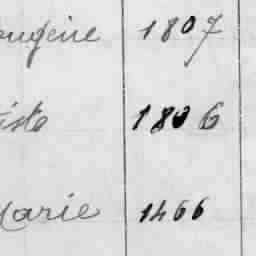 ougène 1807
iste 1806
Marie 1466